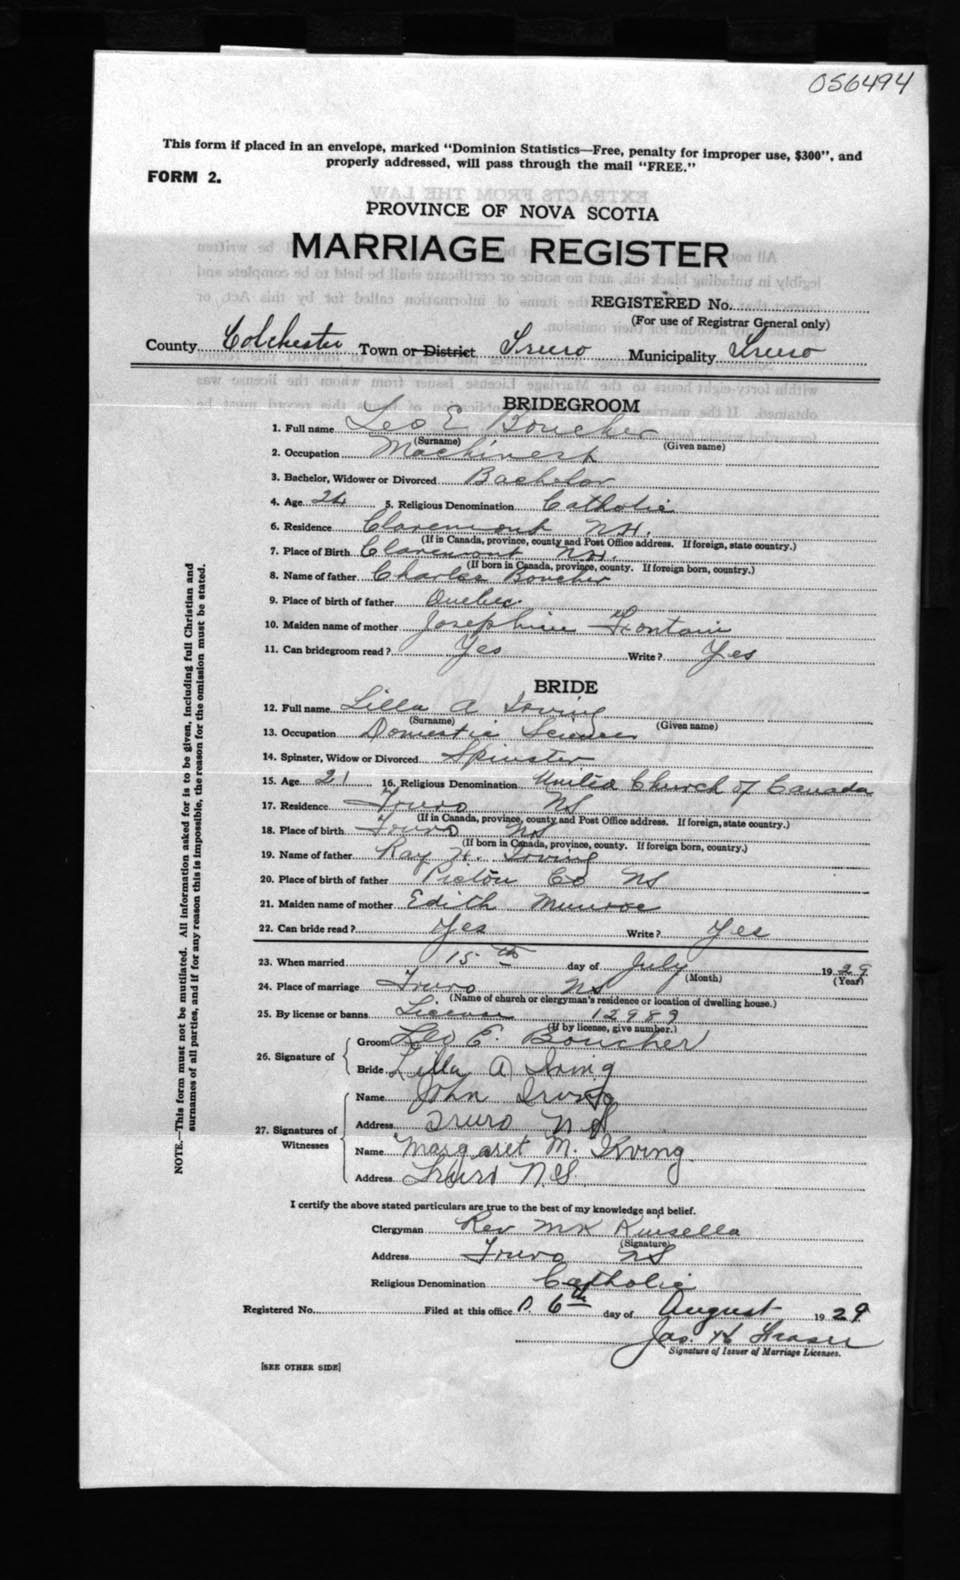 056494
This form if placed in an envelope, marked "Dominion Statistics—Free, penalty for improper use, $300", and
properly addressed, will pass through the mail "FREE."
FORM 2.
PROVINCE OF NOVA SCOTIA
MARRIAGE REGISTER
REGISTERED No.
(For use of Registrar General only)
County Colchester Town or District Truro Municipality Truro
BRIDEGROOM
1. Full name Leo E Boucher
(Surname) (Given name)
2. Occupation Machinest
3. Bachelor, Widower or Divorced Bachelor
4. Age 24 5. Religious Denomination Catholic
6. Residence Claremont NH.
(If in Canada, province, county and Post Office address. If foreign, state country.)
7. Place of Birth Claremont NH.
(If born in Canada, province, county. If foreign born, country.)
8. Name of father Charles Boucher
9. Place of birth of father Quebec
10. Maiden name of mother Josephine Fontain
11. Can bridegroom read? Yes Write? Yes
BRIDE
12. Full name Lilla A Irving
(Surname) (Given name)
13. Occupation Domestic Science
14. Spinster, Widow or Divorced Spinster
15. Age 21 16. Religious Denomination United Church of Canada
17. Residence Truro NS
(If in Canada, province, county and Post Office address. If foreign, state country.)
18. Place of birth Truro NS
(If born in Canada, province, county. If foreign born, country.)
19. Name of father Ray H. Irving
20. Place of birth of father Pictou Co NS
21. Maiden name of mother Edith Munroe
22. Can bride read? Yes Write? Yes
23. When married 15th day of July 1929
(Month) (Year)
24. Place of marriage Truro NS
(Name of church or clergyman's residence or location of dwelling house.)
25. By license or banns License 12989
(If by license, give number.)
26. Signature of Groom Leo E. Boucher
Bride Lilla A Irving
27. Signatures of Witnesses
Name John Irving
Address Truro N S
Name Margaret M. Irving
Address Truro N.S.
I certify the above stated particulars are true to the best of my knowledge and belief.
Clergyman Rev
(Signature)
Address Truro NS
Religious Denomination Catholic
Registered No. Filed at this office 6th day of August 1929
Jas. H Fraser
Signature of Issuer of Marriage Licenses.
[SEE OTHER SIDE]
NOTE.—This form must not be mutilated. All information asked for is to be given, including full Christian and
surnames of all parties, and if for any reason this is impossible, the reason for the omission must be stated.